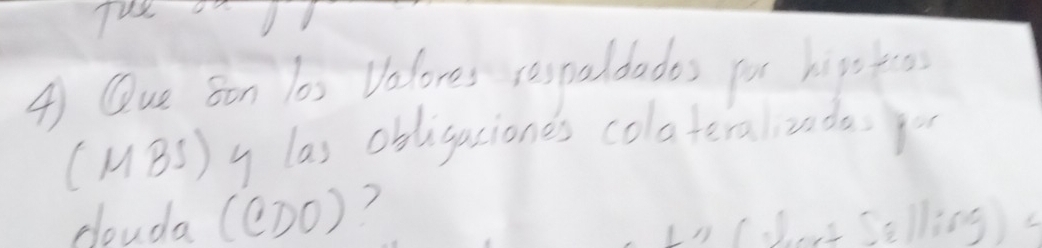 4) Que son los Valores respaldados por hipotecas
(MBS) y las obligaciones colateralizadas por
deuda (CDO)?
(Short Selling)